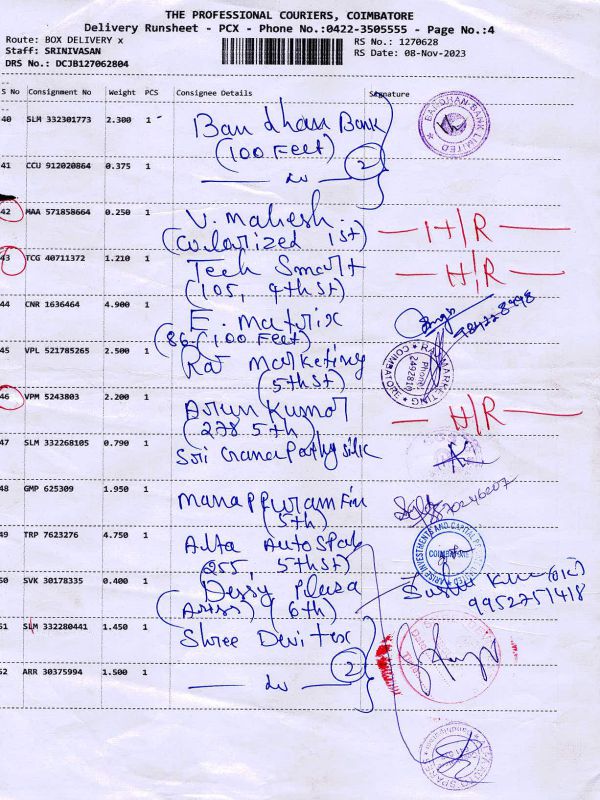 THE PROFESSIONAL COURIERS, COIMBATORE
Delivery Runsheet - PCX - Phone No.:0422-3505555 - Page No.:4
Route: BOX DELIVERY x
RS No.: 1270628
Staff: SRINIVASAN
RS Date: 08-Nov-2023
DRS No.: DCJB127062804
S No Consignment No Weight PCS Consignee Details Signature
40 SLM 332301773 2.300 1 Bandhan Bank
(100 Feet)
BANDHAN BANK LIMITED
41 CCU 912020864 0.375 1 2
42 MAA 571858664 0.250 1 V. Mahesh.
(Cularized 1st)
43 TCG 40711372 1.210 1 Tech Smart
(105, 9th St)
44 CNR 1636464 4.900 1 E. Matrix
(86-(100 Feet)
45 VPL 521785265 2.500 1 Raj Marketing
(5th St)
RAJ MARKETING
COIMBATORE
Phone:
46 VPM 5243803 2.200 1 Arun Kumar
(278 5th)
47 SLM 332268105 0.790 1 Sri Ganapathy silk
48 GMP 625309 1.950 1 Manappuram Fin
(5th)
49 TRP 7623276 4.750 1 Alta Auto Spa
(255, 5th St)
ARISE INVESTMENTS AND CAPITAL
COIMBATORE
50 SVK 30178335 0.400 1 Dessy Plasa
(6th)
9952751418
51 SLM 332280441 1.450 1 Shree Devi tex
52 ARR 30375994 1.500 1 2